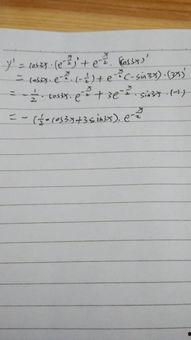 y' = cos3x·(e^{-x/2})' + e^{-x/2}·(cos3x)'
= cos3x·e^{-x/2}·(-1/2) + e^{-x/2}(-sin3x)·(3x)'
= -1/2·cos3x·e^{-x/2} + 3e^{-x/2}·sin3x·(-1)
= -(1/2·cos3x+3sin3x)·e^{-x/2}